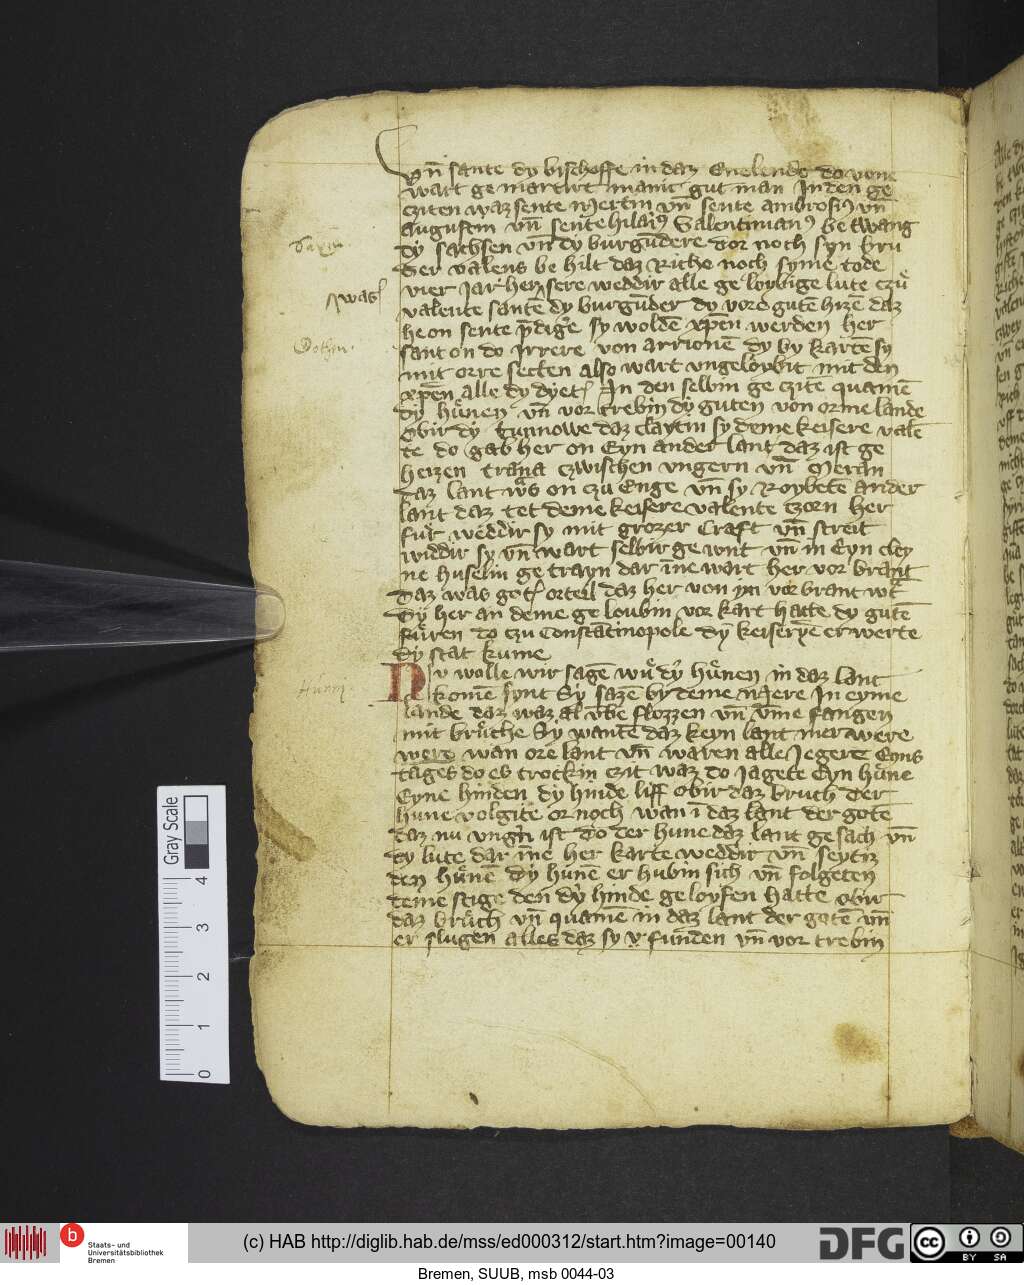 vn̄ sante dy bischoffe in daz Enelende do vone
wart ge martirt manic gut man In den ge
cziten waz sente Mertin vn̄ sente ambrosiꝰ vn̄
augustin vn̄ sente hilariꝰ Valentinianꝰ be twang
dy sachsen vn̄ dy burgūdere dor noch syn bru
der valens be hilt daz Riche noch syme tode
vier Jar her, sere weddir alle ge loybige lute czu
valente santē dy burgūder dy vore gutē hizē daz
he on sente p̄digʼe sy woldē xp̄en werden her
sant on do Irrere von arrionē dy by kartē sy
mit orre secten also wart vngeloybit mit den
xp̄en alle dy dyet In den selbin ge czite quamē
dy hůnen vn̄ vor trebin dy guten von orme lande
obir dy tunnowe daz claytin sy deme keisere valē
te do gab her on Eyn ander lant daz ist ge
heizen trana czwischen vngern vn̄ Meran
daz lant wͦs on czu Enge vn̄ sy Roybetē ander
lant daz tet deme keisere valente tzorn her
fůr weddir sy mit grozer Craft vn̄ streit
widdir sy vn̄ wart selbir ge wnt vn̄ in Eyn cley
ne huselin ge trayn dar īne wart her vor brant
daz was gotꝭ orteil daz her von ym vor brant wt̄
dy her an deme ge loubin vor kart hatte dy gutē
fůren do czu Constātinopole dy keiserȳe er werte
dy stat kume
Nv wolle wir sagē wů dẙ hůnen in daz lant
komē synt Sy sazē by deme Mere In eyme
lande daz waz al vm̄be flozzen vn̄ vm̄e fangen
mit brůche Sy wantē daz keyn lant mer were
were wan ore lant vn̄ waren alle Jegere Eyns
tages do es trockin czit waz do Jagete Eyn hůne
Eyne hinden dy hinde liff obir daz bruch der
hune volgite or noch wan ī daz lant der gotē
daz nu vngīn ist do der hune daz lant ge sach vn̄
dy lute dar īne her karte weddir vn̄ seytiz
den hůnē dy hunē er hubin sich vn̄ folgeten
deme stige den dẙ hinde ge loyfen hatte obir
daz brůch vn̄ quamē in daz lant der gotē vn̄
er slugen alles daz sy v̄ funden vn̄ vor trebin
was
Gothen.
Hunni.
Gray Scale
4
3
2
1
0
b
Staats- und
Universitätsbibliothek
Bremen
(c) HAB http://diglib.hab.de/mss/ed000312/start.htm?image=00140
DFG
cc
BY SA
Bremen, SUUB, msb 0044-03